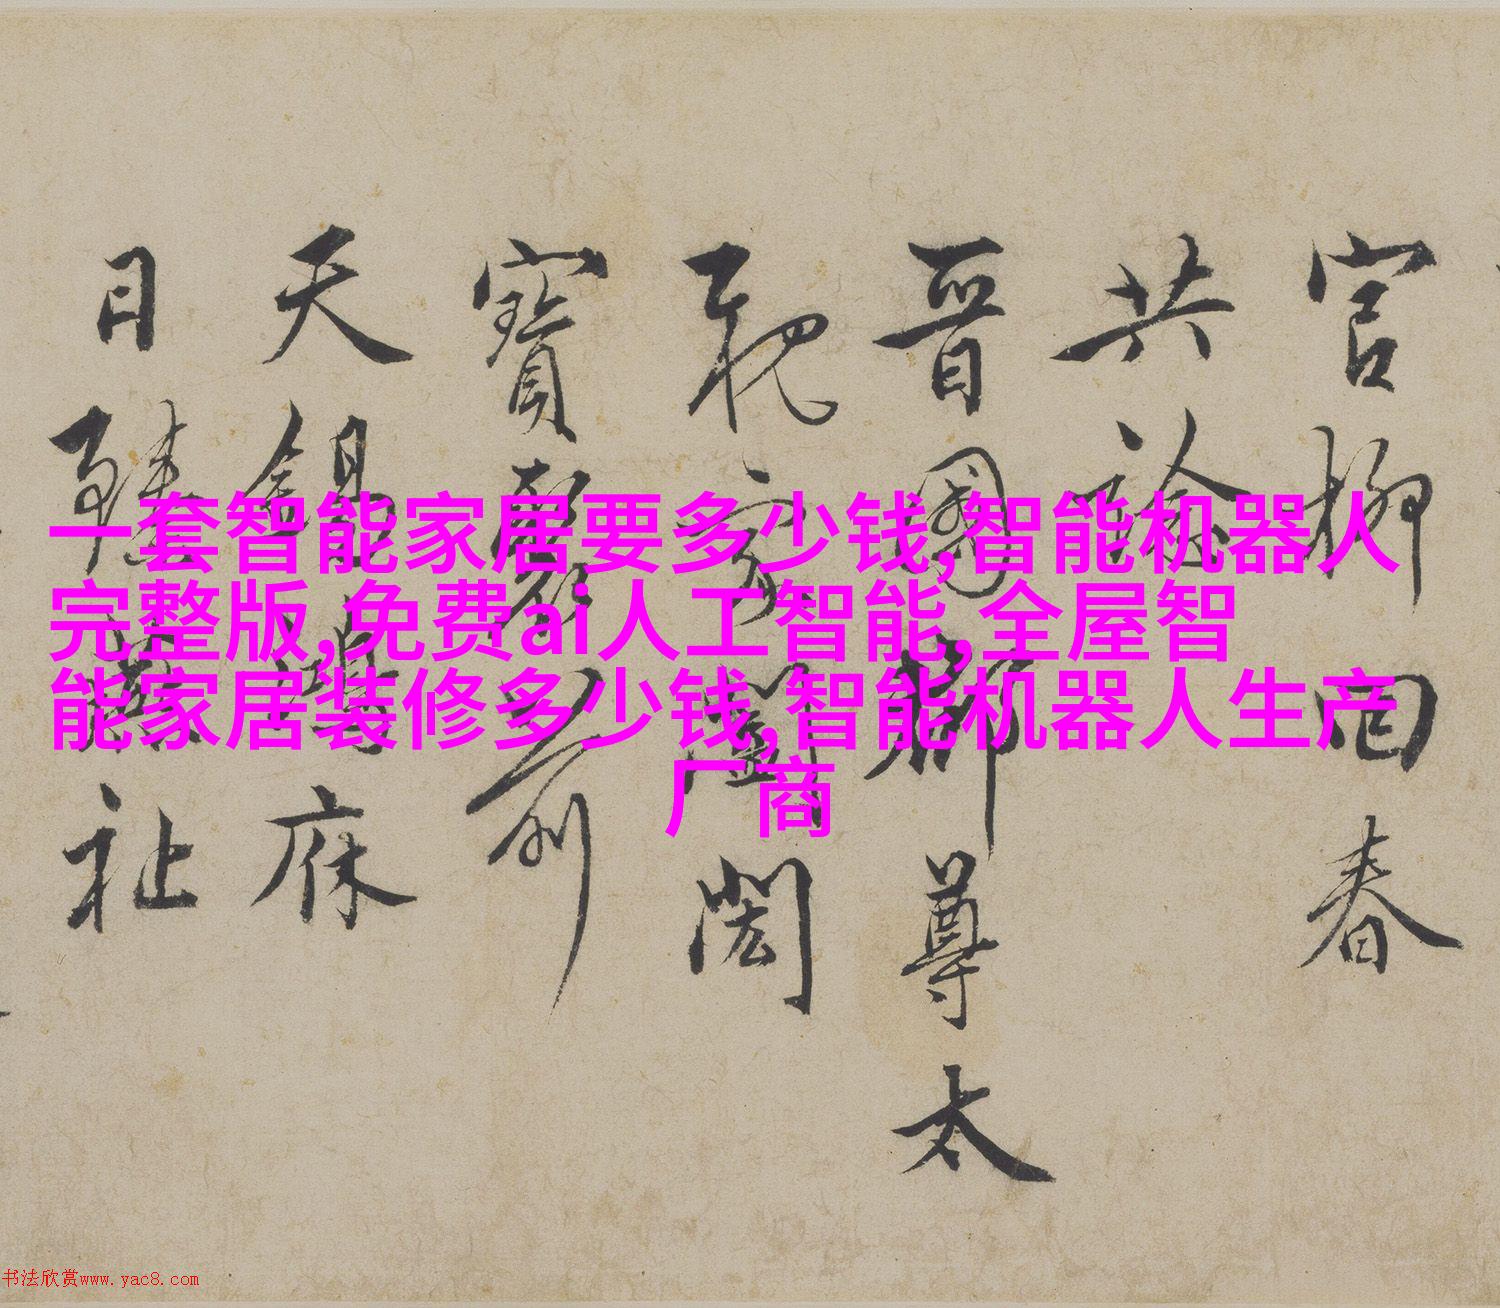 官柳回春
共論
晉尊太
家閎
寶前
天錫鴻庥
日臻祉
一套智能家居要多少钱,智能机器人
完整版,免费ai人工智能,全屋智
能家居装修多少钱,智能机器人生产
厂商
书法欣赏www.yac8.com